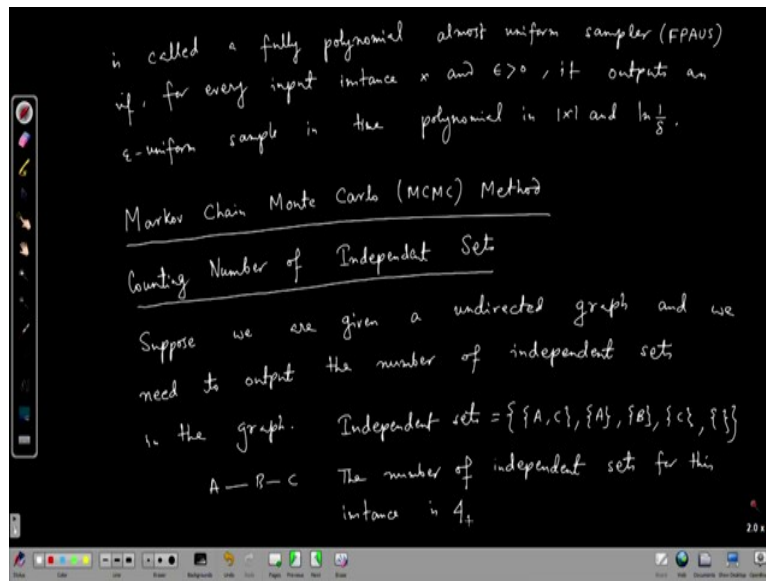 is called a fully polynomial almost uniform sampler (FPAUS)
if, for every input instance x and ϵ>0, it outputs an
ε-uniform sample in time polynomial in |x| and ln 1/δ.
Markov Chain Monte Carlo (MCMC) Method
Counting Number of Independent Sets
Suppose we are given a undirected graph and we
need to output the number of independent sets
in the graph. Independent sets = { {A,C}, {A}, {B}, {C}, { } }
A — B — C The number of independent sets for this
instance is 4
2.0 x